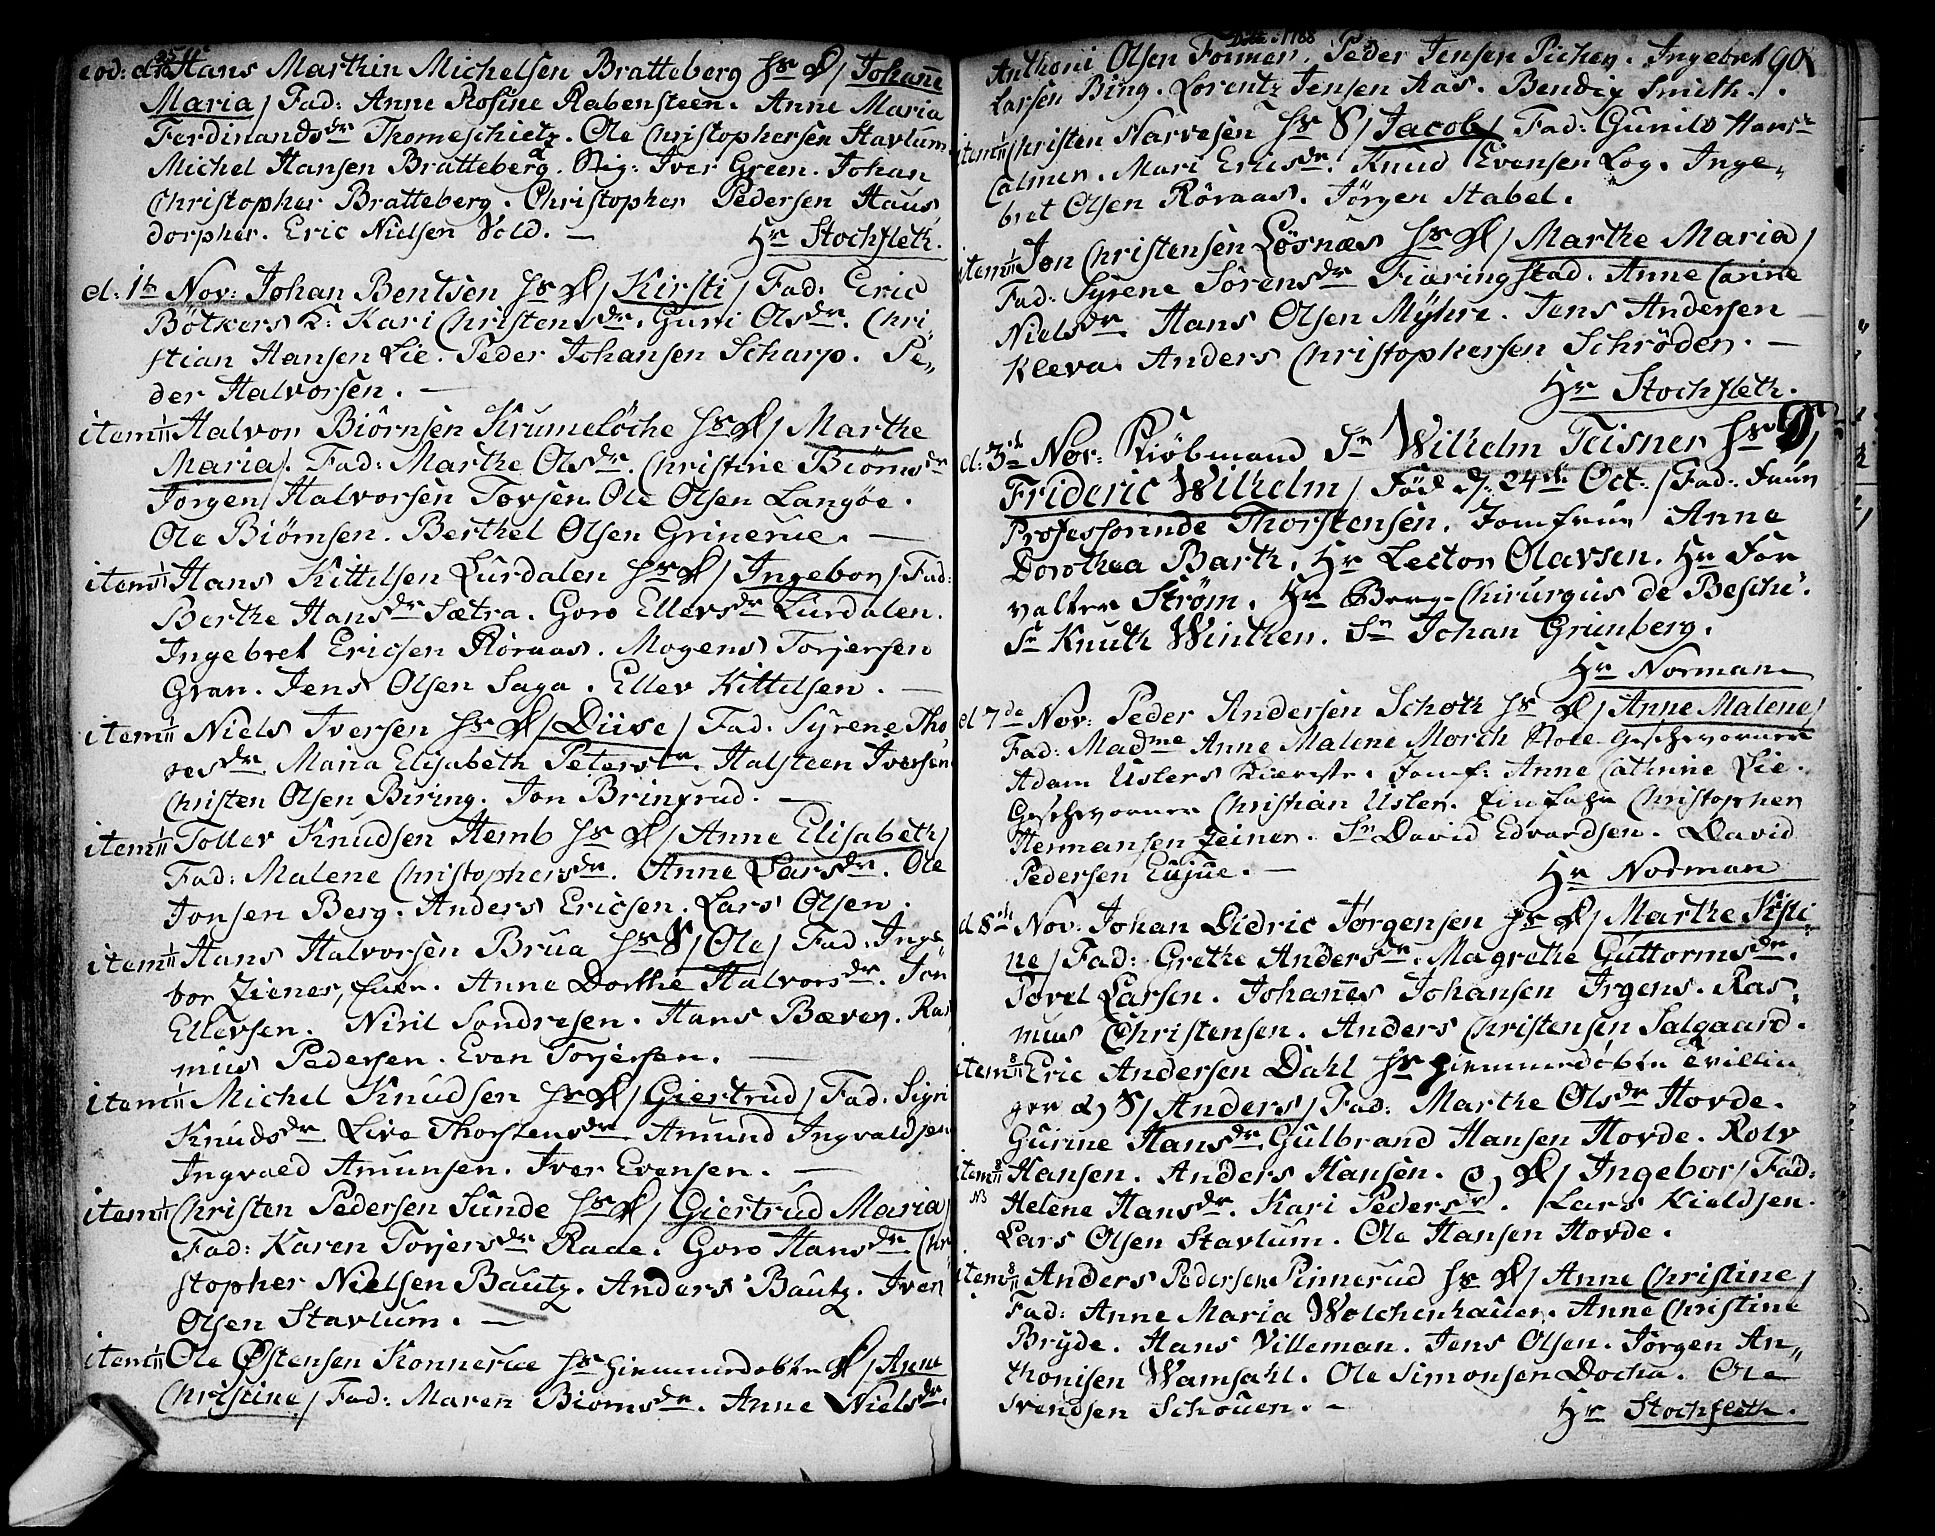 eod: d: 25 8/br Hans Marthin Michelsen Bratteberg Hs D/ Johañe
Maria/ Fad: Anne Rosine Rabensteen. Anne Maria
Ferdinandsdr Thomeschietz. Ole Christophersen Stavlum
Michel Hansen Bratteberg. Stig: Iver Green. Johan
Christopher Bratteberg. Christopher Pedersen Haus
dorpher. Eric Nielsen Vold. —
Hr Stochfleth.
d: 1te Nov: Johan Bentsen Hs D/ Kirsti/ Fad: Eric
Bötkers K: Kari Christensdr. Guri Olsdr. Chri„
stian Hansen Lie. Peder Johansen Scharp. Pe„
der Halvorsen. —
item 1/11 Halvor Biörnsen Krumelöche Hs D/ Marthe
Maria/. Fad: Marthe Olsdr. Christine Biörnsdr
Jörgen Halvorsen Tovsen. Ole Olsen Langöe.
Ole Biörnsen. Berthel Olsen Grinerue. —
item 1/11 Hans Kittilsen Lurdalen Hs D/ Ingebor/ Fad:
Berthe Hansdr Sætra. Goro Ellevsdr Lurdalen.
Ingebret Ericsen Röraas. Mogens Torjersen
Gran. Jens Olsen Saga. Ellev Kittilsen. —
item 1/11 Niels Iversen Hs D/ Düse/ Fad: Syrene Tho
resdr. Maria Elisabeth Petersdr. Halsteen Iversen
Christen Olsen Biring. Jon Bringrud. —
item 1/11 Tollev Knudsen Hemb Hs D/ Anne Elisabeth/
Fad: Malene Christophersdr. Anne Larsdr. Ole
Jonsen Berg. Anders Ericsen. Lars Olsen.
item 1/11 Hans Halvorsen Brua Hs S/ Ole/ Fad: Inge
bor Zienes, Enke. Anne Dorthe Halvorsdr. Jön
Ellevsen. Niril Sondresen. Hans Bæven. Ras
mus Pedersen. Even Torjersen. —
item 1/11 Michel Knudsen Hs D/ Giertrud/ Fad: Sigri
Knudsdr. Live Thorstensdr. Amund Ingvaldsen
Ingvald Amunsen. Iver Evensen. —
item 1/11 Christen Pedersen Sunde Hs D/ Giertrud Maria/
Fad: Karen Torjersdr Raae. Goro Hansdr. Chri
stopher Nielsen Bautz. Anders Bautz. Iver
Olsen Stavlum. —
item 1/11 Ole Östensen Konnerue Hs hiemmedöbte D/ Anne
Christine/ Fad: Maren Biörnsdr. Anne Nielsdr.
Dito 1788
90
Anthoni Olsen Former. Peder Jensen Picher. Ingebret
Larsen Bing. Lorentz Jensen Aas. Bendix Smith.
item 1/11 Christen Narvesen Hs S/ Jacob/ Fad: Gunild Hans
Calmer. Mari Ericsdr. Knud Evensen Log. Inge„
bret Olsen Röraas. Jörgen Stabel.
item 1/11 Jon Christensen Lösnæs Hs D/ Marthe Maria/
Fad: Syrene Sörensdr Fiæringstad. Anne Carine
Nielsdr. Hans Olsen Mÿhre. Jens Andersen
Kleva. Anders Christophersen Schröder. —
Hr Stochfleth.
d: 3die Nov: Kiöbmand Sr Wilhelm Teisner Hs D/
Frideric Wilhelm/ Föd d: 24de Oct:/ Fad: Frue
Professorinde Thorstensen. Jomfrue Anne
Dorothea Barth. Hr Lector Olavsen. Hr For
valter Ström. Hr Berg-Chirurgus de Besche.
Sr Knuth Winther. Sr Johan Grünberg.
Hr Norman
d 7de Nov: Peder Andersen Schoth Hs D/ Anne Malene/
Fad: Madme Anne Malene Morch Geschvorner
Adam Uslers Kiereste. Jomf: Anne Cathrine Lie.
Geschvorner Christian Usler. Christopher
Hermansen Zeiner. Sr David Edvardsen. David
Pedersen Eujue. —
Hr Norman
d 8de Nov: Johan Didric Jörgensen Hs D/ Marthe Kisti„
ne/ Fad: Grethe Andersdr. Magrethe Guttormsdr.
Povel Larsen. Johañes Johansen Irgens. Ras„
mus Christensen. Anders Christensen Salgaard.
item 8/11 Eric Andersen Dahl Hs hiemmedöbte Tvillin
ger a) S/ Anders/ Fad: Marthe Olsdr Hovde.
Gurine Hansdr. Gulbrand Hansen Hovde. Rolv
item 8/11 Hansen. Anders Hansen. e) D/ Ingebor/ Fad:
NB Helene Hansdr. Kari Pedersdr. Lars Kieldsen.
Lars Olsen Stavlum. Ole Hansen Hovde.
item 8/11 Anders Pedersen Pinnerud Hs D/ Anne Christine/
Fad: Anne Maria Wolchenhauer. Anne Christine
Bryde. Hans Villeman. Jens Olsen. Jörgen An„
thonisen Wamsahl. Ole Simonsen Docka. Ole
Svendsen Schouen. —
Hr Stochfleth.